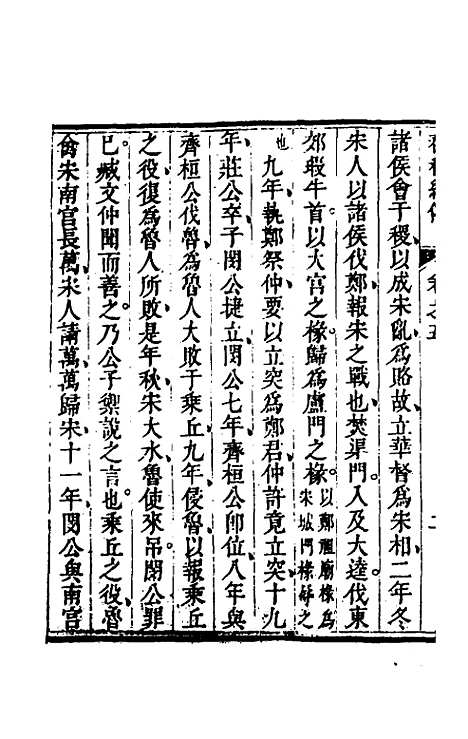 卷之五
諸侯會于稷以成宋亂爲賂故立華督爲宋相二年冬
宋人以諸侯伐鄭報宋之戰也焚渠門入及大逵伐東
郊取牛首以大宮之椽歸爲盧門之椽以鄭祖廟椽爲宋城門椽辱之
也九年執鄭祭仲要以立突爲鄭君仲許竟立突十九
年莊公卒子閔公捷立閔公七年齊桓公卽位八年與
齊桓公伐魯爲魯人大敗于乘丘九年侵魯以報乘丘
之役復爲魯人所敗是年秋宋大水魯使來吊閔公罪
已臧文仲聞而善之乃公子禦說之言也乘丘之役魯
禽宋南宮長萬宋人請萬萬歸宋十一年閔公與南宮